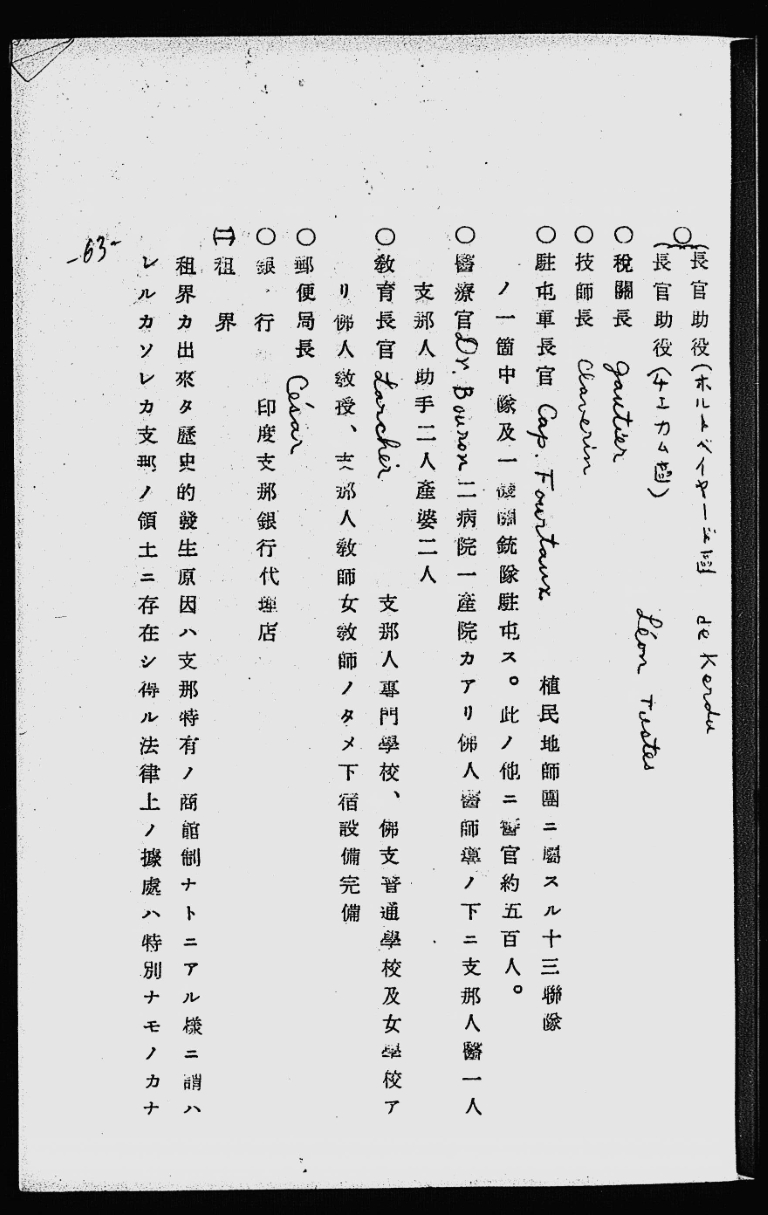 ○長官助役(ホルトベイヤール團 de Kerdu
(長官助役(チエカム團) Léon Tastes
○稅關長 Gautier
○技師長 Claverin
○駐屯軍長官 Cap. Fourtaux 植民地師團ニ屬スル十三聯隊
ノ一箇中隊及一機關銃隊駐屯ス。此ノ他ニ警官約五百人。
○醫療官 Dr. Bouron 二病院一產院カアリ佛人醫師導ノ下ニ支那人醫一人
支那人助手二人產婆二人
○敎育長官 Larcher 支那人專門學校、佛支普通學校及女學校ア
リ佛人敎授、支那人敎師女敎師ノタメ下宿設備完備
○郵便局長 César
○銀行 印度支那銀行代理店
㈡租界
租界カ出來タ歷史的發生原因ハ支那特有ノ商館制ナトニアル樣ニ謂ハ
レルカソレカ支那ノ領土ニ存在シ得ル法律上ノ據處ハ特別ナモノカナ
-63-